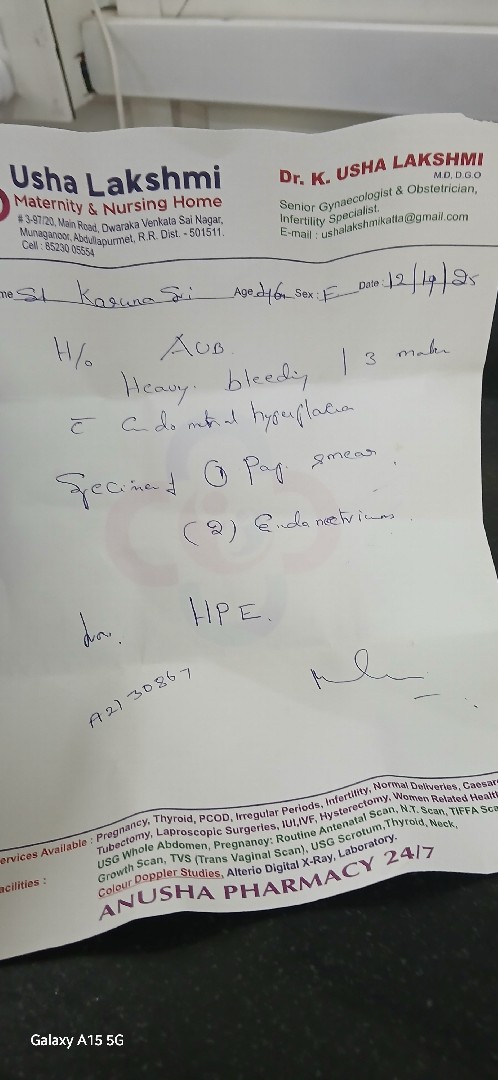 Usha Lakshmi
Maternity & Nursing Home
# 3-97/20, Main Road, Dwaraka Venkata Sai Nagar,
Munaganoor, Abdullapurmet, R.R. Dist. - 501511.
Cell : 85230 05554
Dr. K. USHA LAKSHMI
M.D, D.G.O
Senior Gynaecologist & Obstetrician,
Infertility Specialist.
E-mail : ushalakshmikatta@gmail.com
me Karuna Sri Age Sex: F Date: 12/19/25
H/o AUB.
Heavy. bleeding / 3
c̄ hyperplasia
(1) Pap smear.
(2) Endometrium.
for. HPE.
A2130867
ervices Available : Pregnancy, Thyroid, PCOD, Irregular Periods, Infertility, Normal Deliveries, Caesar
Tubectomy, Laproscopic Surgeries, IUI,IVF, Hysterectomy. Women Related Health
acilities : USG Whole Abdomen, Pregnancy: Routine Antenatal Scan, N.T. Scan, TIFFA Sca
Growth Scan, TVS (Trans Vaginal Scan), USG Scrotum,Thyroid, Neck,
Colour Doppler Studies, Alterio Digital X-Ray, Laboratory.
ANUSHA PHARMACY 24/7
Galaxy A15 5G